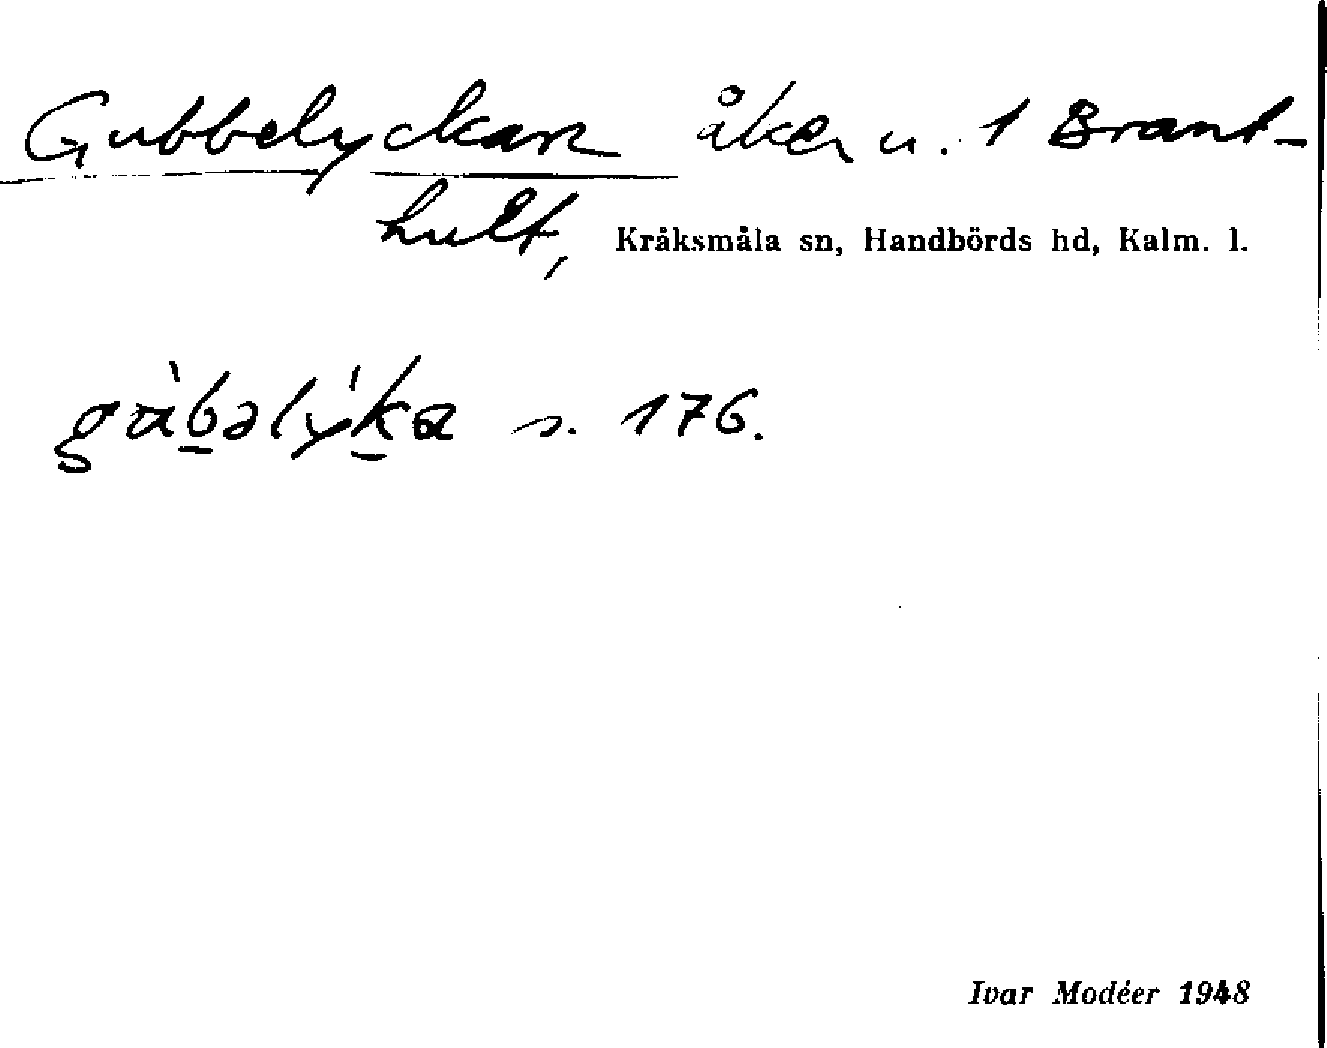 Gubbelyckan åker u. 1 Brant-
hult, Kråksmåla sn, Handbörds hd, Kalm. l.
gùb̲əlý'k̲a s. 176.
Ivar Modéer 1948